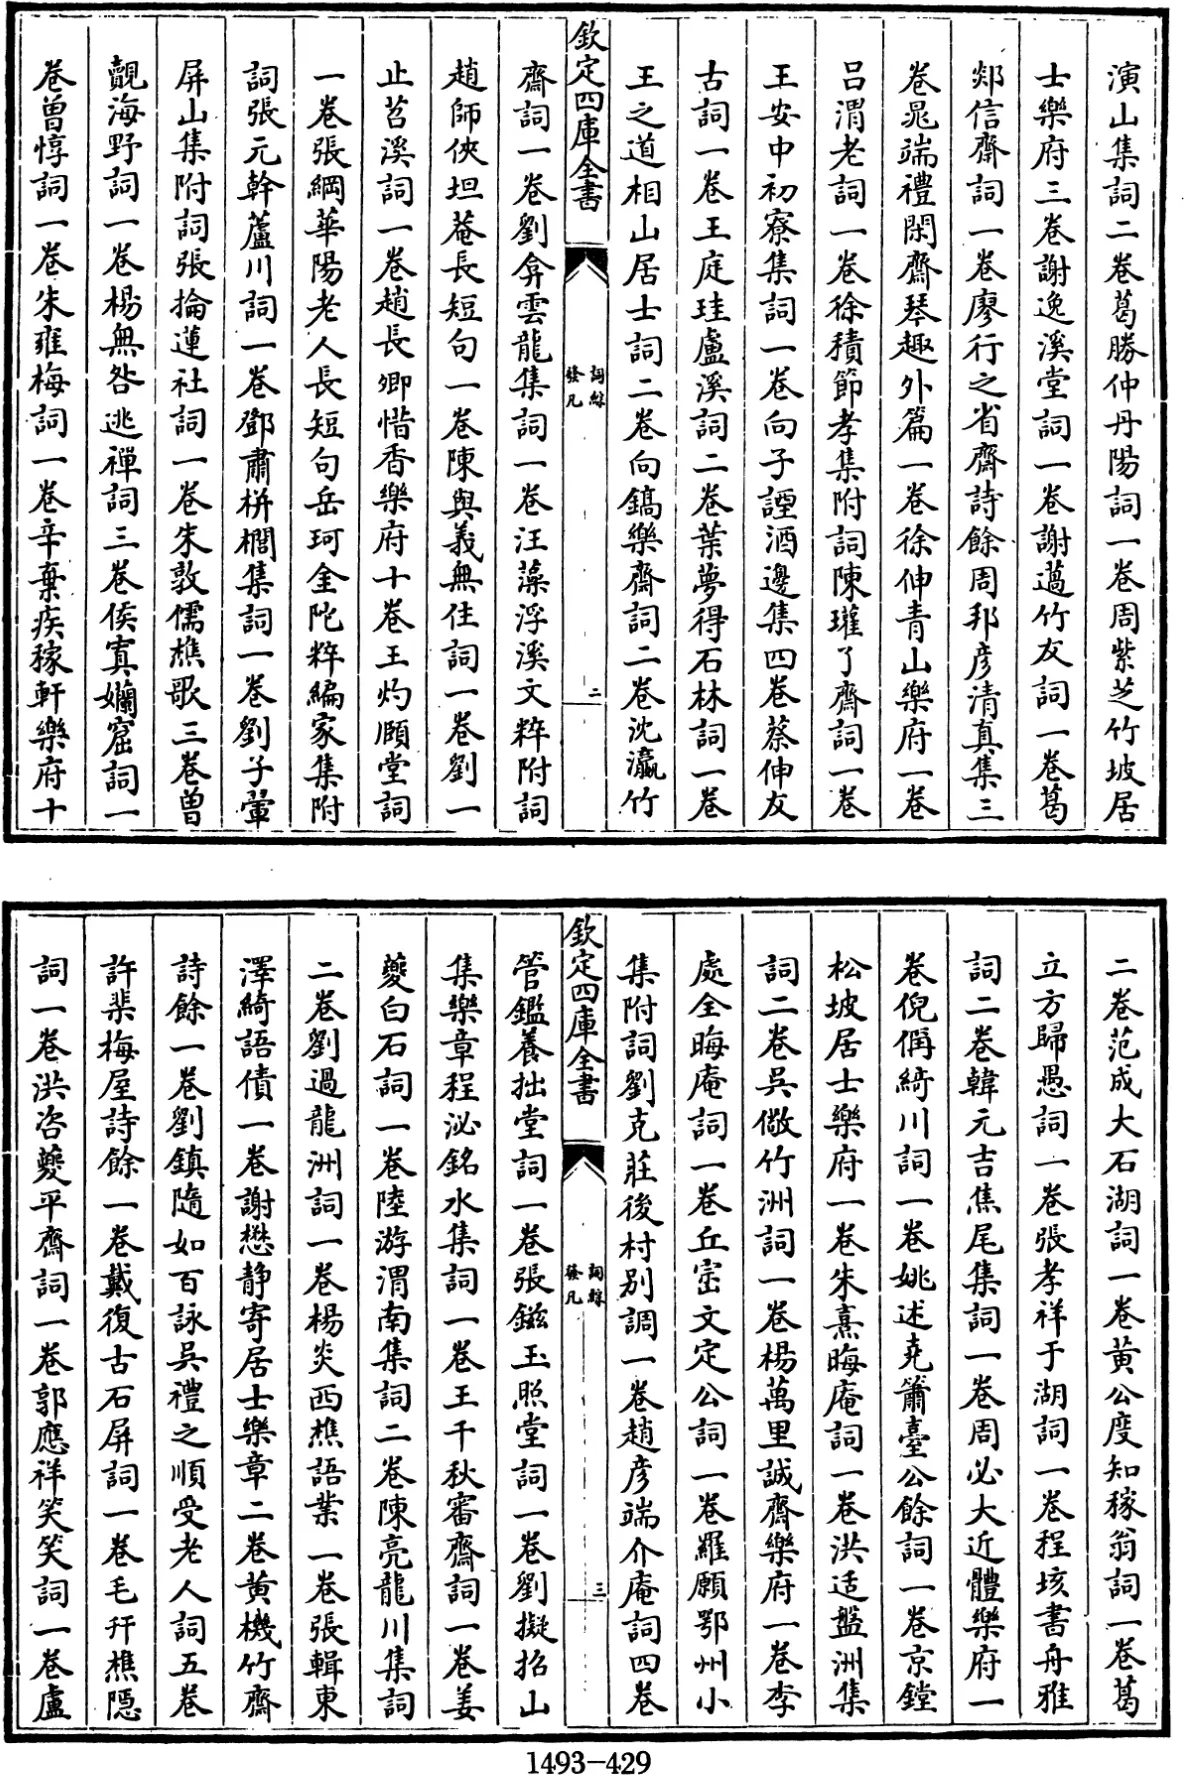 演山集詞二卷葛勝仲丹陽詞一卷周紫芝竹坡居
士樂府三卷謝逸溪堂詞一卷謝薖竹友詞一卷葛
郯信齋詞一卷廖行之省齋詩餘周邦彦清真集三
卷晁端禮閑齋琴趣外篇一卷徐伸青山樂府一卷
吕渭老詞一卷徐積節孝集附詞陳瓘了齋詞一卷
王安中初寮集詞一卷向子諲酒邊集四卷蔡伸友
古詞一卷王庭珪盧溪詞二卷葉夢得石林詞一卷
王之道相山居士詞二卷向鎬樂齋詞二卷沈瀛竹
欽定四庫全書
詞綜
發凡
二
齋詞一卷劉弇雲龍集詞一卷汪藻浮溪文粹附詞
趙師俠坦菴長短句一卷陳與義無住詞一卷劉一
止苕溪詞一卷趙長卿惜香樂府十卷王灼頤堂詞
一卷張綱華陽老人長短句岳珂金陀粹編家集附
詞張元幹蘆川詞一卷鄧肅栟櫚集詞一卷劉子翬
屏山集附詞張掄蓮社詞一卷朱敦儒樵歌三卷曾
覿海野詞一卷楊無咎逃禪詞三卷侯寘嬾窟詞一
卷曾惇詞一卷朱雍梅詞一卷辛棄疾稼軒樂府十
二卷范成大石湖詞一卷黄公度知稼翁詞一卷葛
立方歸愚詞一卷張孝祥于湖詞一卷程垓書舟雅
詞二卷韓元吉焦尾集詞一卷周必大近體樂府一
卷倪偁綺川詞一卷姚述堯簫臺公餘詞一卷京鏜
松坡居士樂府一卷朱熹晦庵詞一卷洪适盤洲集
詞二卷吳儆竹洲詞一卷楊萬里誠齋樂府一卷李
處全晦庵詞一卷丘崈文定公詞一卷羅願鄂州小
集附詞劉克莊後村别調一卷趙彦端介庵詞四卷
欽定四庫全書
詞綜
發凡
三
管鑑養拙堂詞一卷張鎡玉照堂詞一卷劉擬招山
集樂章程泌銘水集詞一卷王千秋審齋詞一卷姜
夔白石詞一卷陸游渭南集詞二卷陳亮龍川集詞
二卷劉過龍洲詞一卷楊炎西樵語業一卷張輯東
澤綺語債一卷謝懋靜寄居士樂章二卷黄機竹齋
詩餘一卷劉鎮隨如百詠吳禮之順受老人詞五卷
許棐梅屋詩餘一卷戴復古石屏詞一卷毛幵樵隱
詞一卷洪咨夔平齋詞一卷郭應祥笑笑詞一卷盧
1493-429